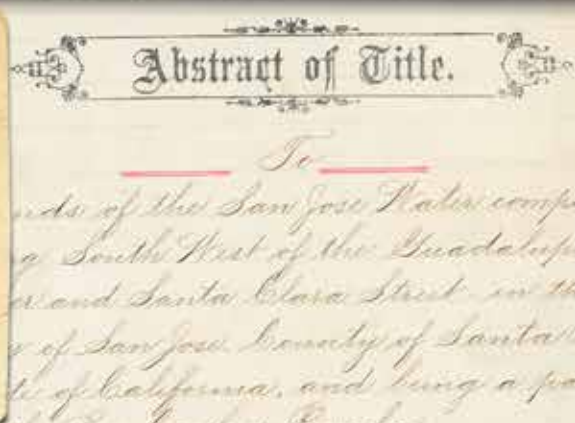 Abstract of Title.
To
nds of the San Jose Water comp
g South West of the Guadalup
er and Santa Clara Street in th
y of San Jose County of Santa
te of California, and being a pa